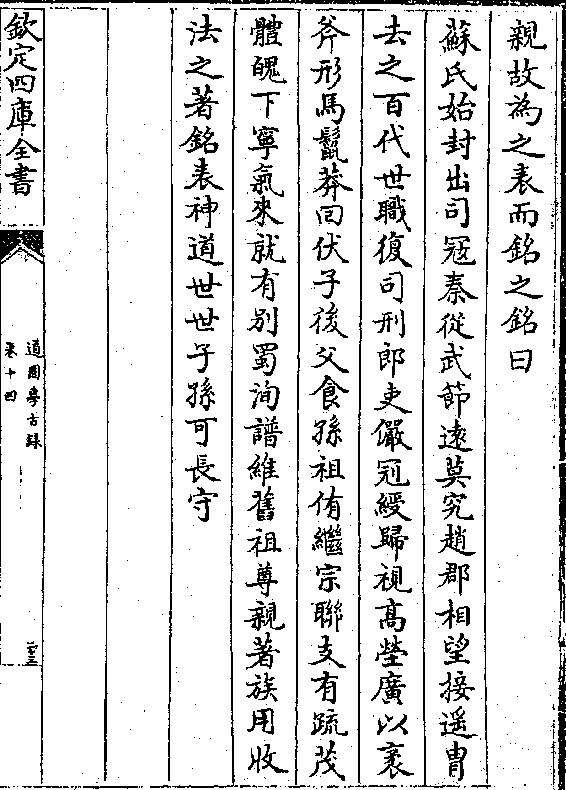 親故為之表而銘之銘曰
蘇氏始封出司冦秦從武節逺莫究趙郡相望接遥冑
去之百代世職復司刑郎吏儼冠綬歸視髙塋廣以袤
斧形馬鬛莽回伏子後父食孫祖侑繼宗聯支有疏茂
體魄下寧氣來就有别蜀洵譜維舊祖尊親著族用收
法之著銘表神道世世子孫可長守
欽定四庫全書
道園學古録
卷十四